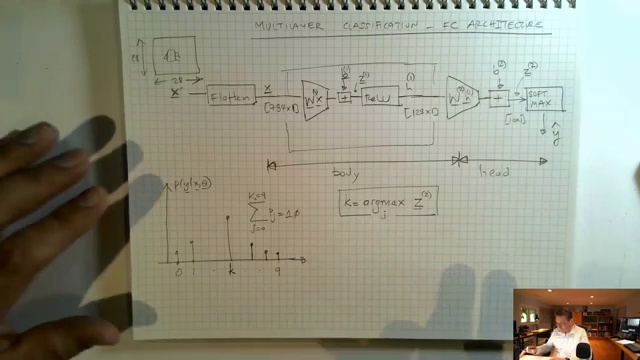 MULTILAYER CLASSIFICATION - FC ARCHITECTURE
28
28
X
Flatten
x
[784x1]
W⁽¹⁾x
b⁽¹⁾
+
z⁽¹⁾
ReLU
h⁽¹⁾
[128x1]
W⁽²⁾h⁽¹⁾
b⁽²⁾
+
z⁽²⁾
[10x1]
SOFT
MAX
ŷ
body
head
p(y|x,θ)
K=9
∑ Pj = 1.0
j=0
0 1 k 9
K = argmax z⁽²⁾
j